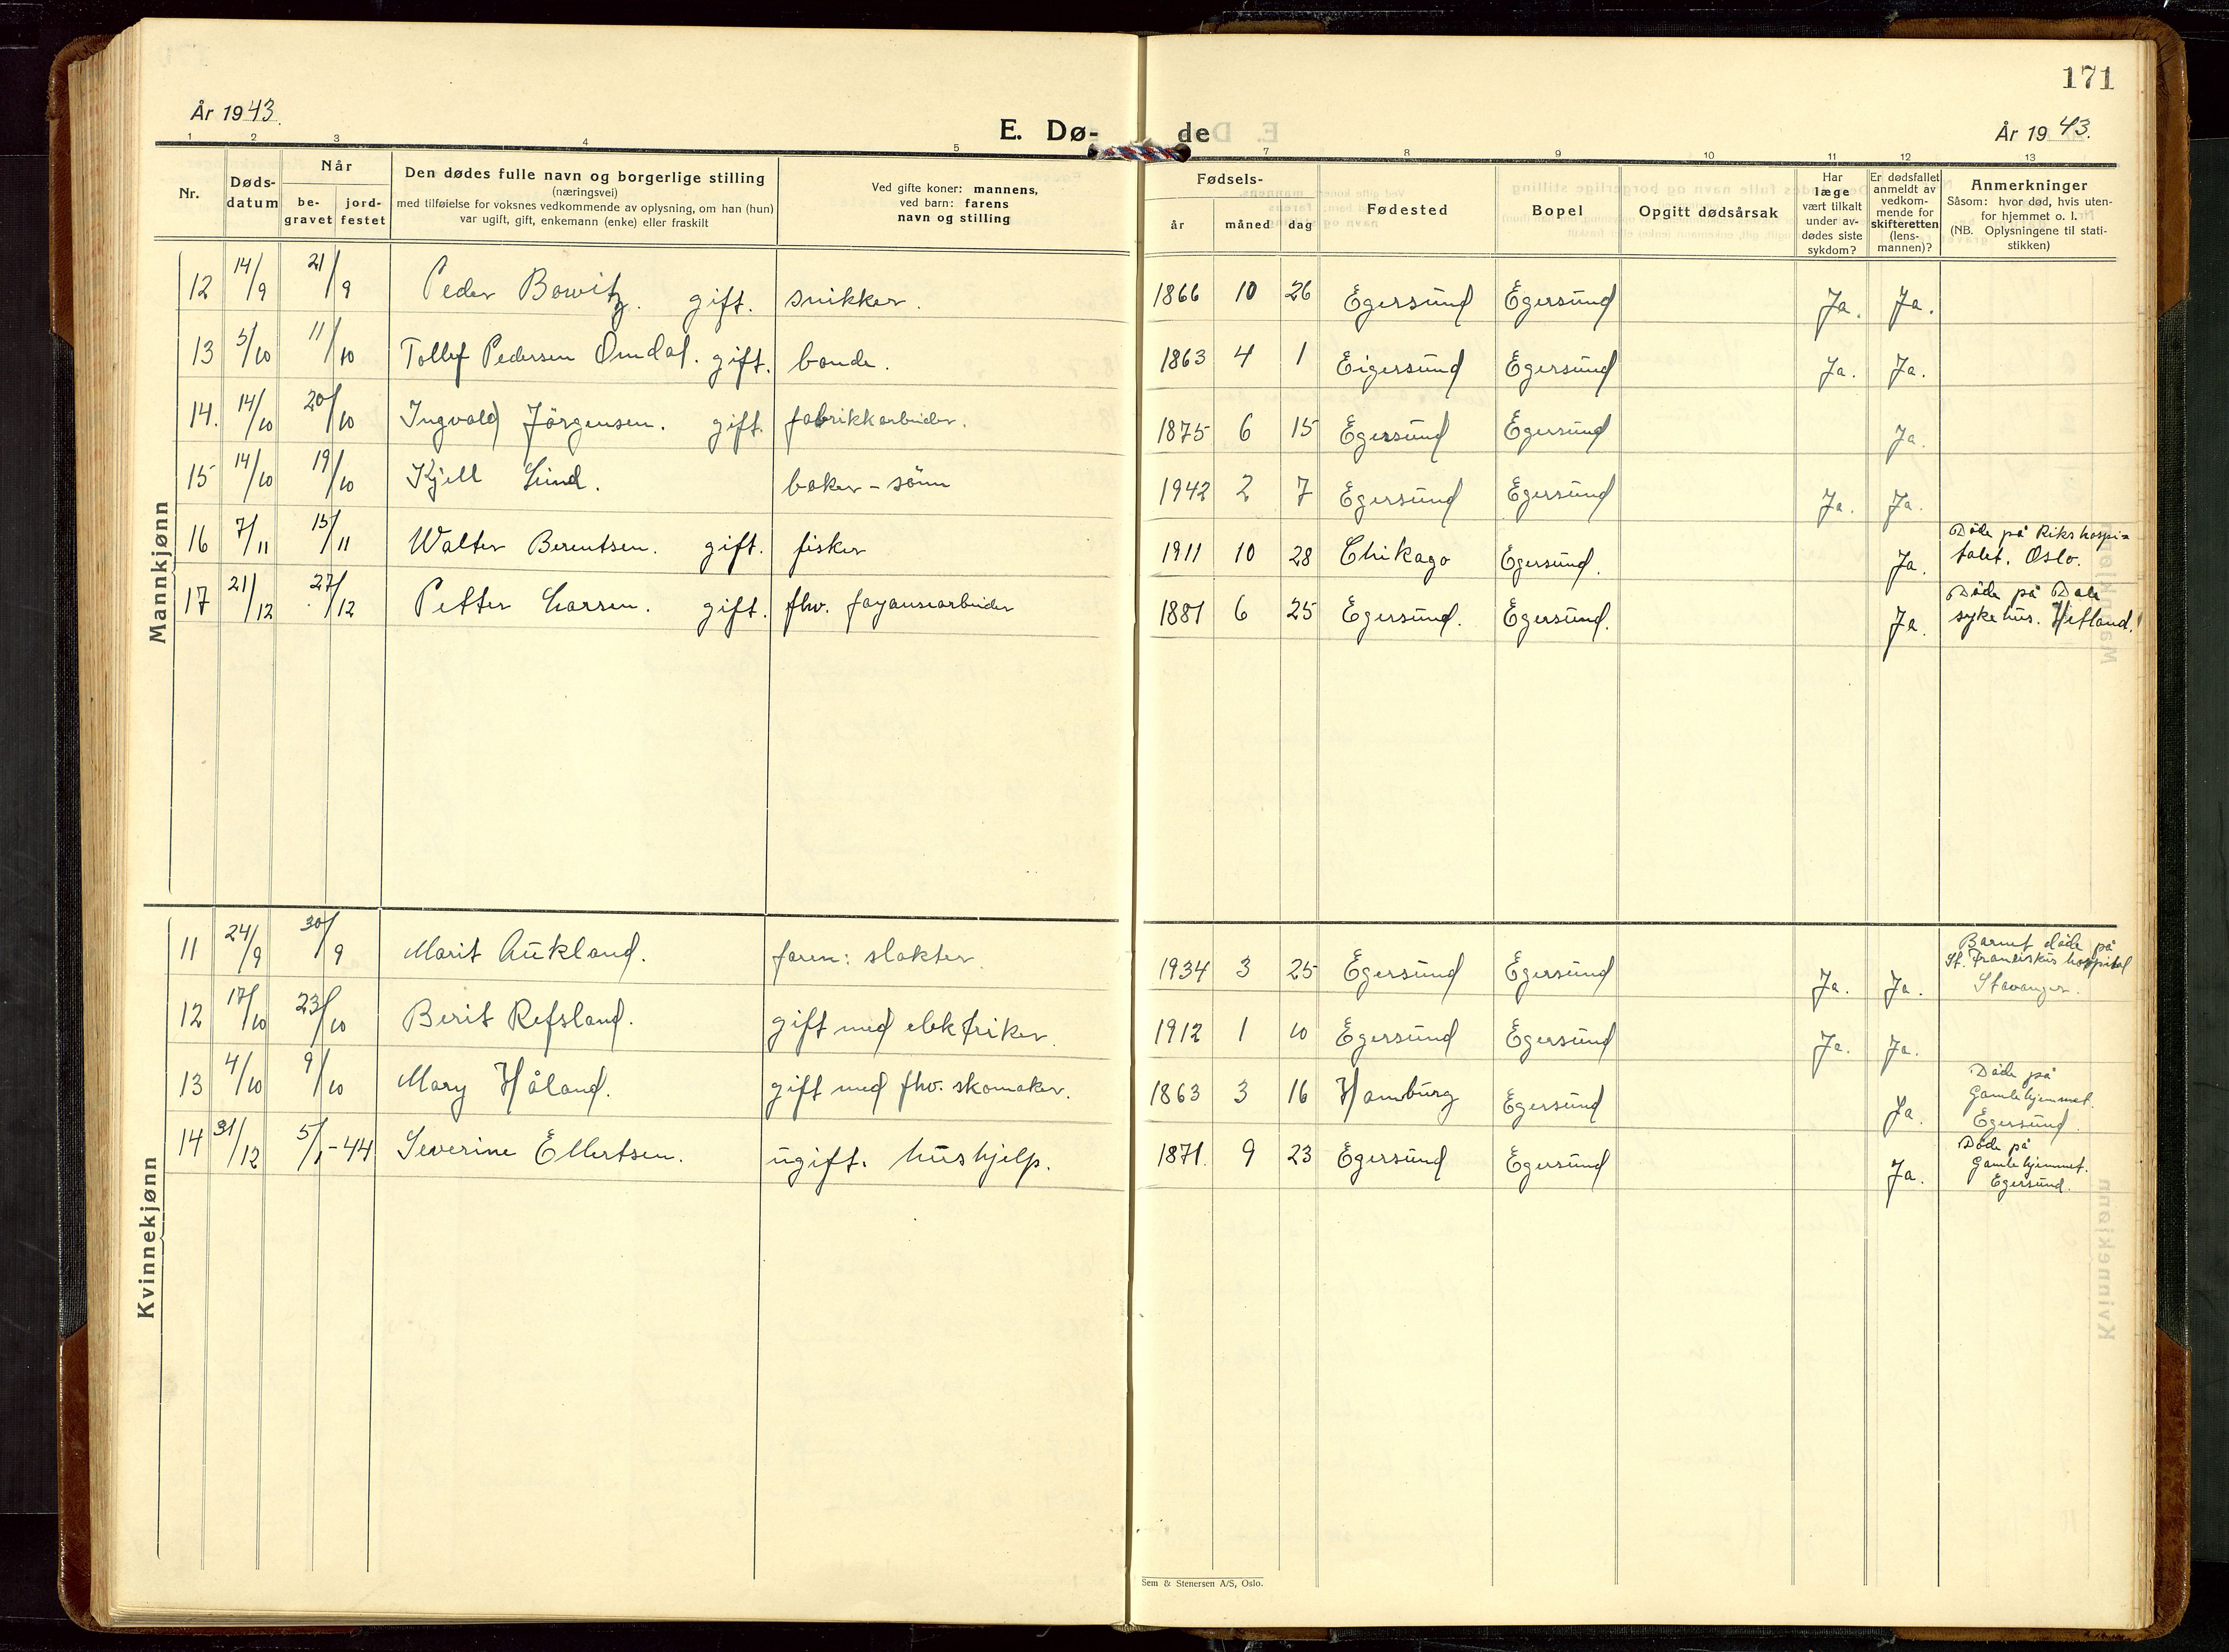 171
År 1943.
E. Dø-
de
År 1943.
1 2 3 4 5 7 8 9 10 11 12 13
Nr.
Døds-
datum
Når
be-
gravet
jord-
festet
Den dødes fulle navn og borgerlige stilling
(næringsvei)
med tilføielse for voksnes vedkommende av oplysning, om han (hun)
var ugift, gift, enkemann (enke) eller fraskilt
Ved gifte koner: mannens,
ved barn: farens
navn og stilling
Fødsels-
år måned dag
Fødested
Bopel
Opgitt dødsårsak
Har
læge
vært tilkalt
under av-
dødes siste
sykdom?
Er dødsfallet
anmeldt av
vedkom-
mende for
skifteretten
(lens-
mannen)?
Anmerkninger
Såsom: hvor død, hvis uten-
for hjemmet o. l.
(NB. Oplysningene til stati-
stikken)
Mannkjønn
12 14/9 21/9 Peder Bowitz. gift. snikker. 1866 10 26 Egersund Egersund Ja. Ja.
13 5/10 11/10 Tollef Pedersen Omdal. gift. bonde. 1863 4 1 Eigersund Egersund Ja. Ja.
14. 14/10 20/10 Ingvald Jörgensen. gift. fabrikkarbeider. 1875 6 15 Egersund Egersund Ja.
15 14/10 19/10 Kjell Lund. baker-sönn 1942 2 7 Egersund Egersund Ja. Ja.
16 7/11 15/11 Walter Berentsen. gift. fisker 1911 10 28 Chikago Egersund. Ja.
Döde på Rikshospi=
talet. Oslo.
17 21/12 27/12 Petter Larsen. gift. fhv. fayansearbeider 1881 6 25 Egersund. Egersund. Ja.
Döde på Dale
sykehus. Hetland.
Kvinnekjønn
11 24/9 30/9 Marit Aukland. faren: slakter. 1934 3 25 Egersund Egersund Ja. Ja.
Barnet döde på
St. Franciskus hospital
Stavanger.
12 17/10 23/10 Berit Refsland. gift med elektriker. 1912 1 10 Egersund Egersund Ja. Ja.
13 4/10 9/10 Mary Håland. gift med fhv. skomaker. 1863 3 16 Hamburg Egersund Ja.
Döde på
Gamlehjemmet.
Egersund.
14 31/12 5/1-44 Severine Ellertsen. ugift. hushjelp. 1871. 9 23 Egersund Egersund Ja.
Döde på
Gamlehjemmet.
Egersund.
Sem & Stenersen A/S, Oslo.